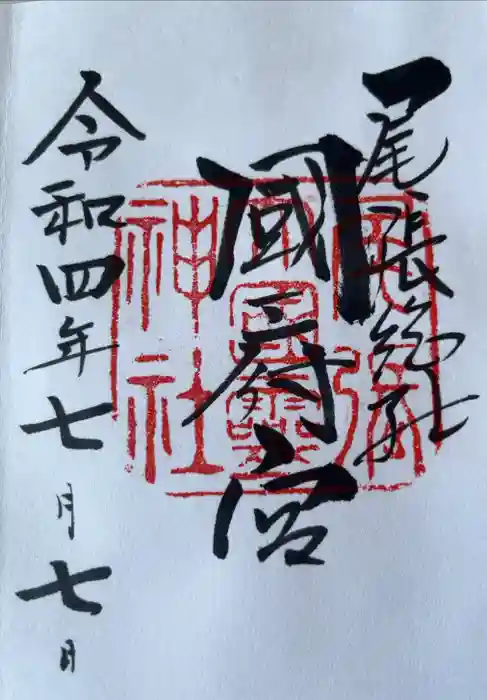 尾張総社
國府宮
令和四年七月七日
尾張
神社